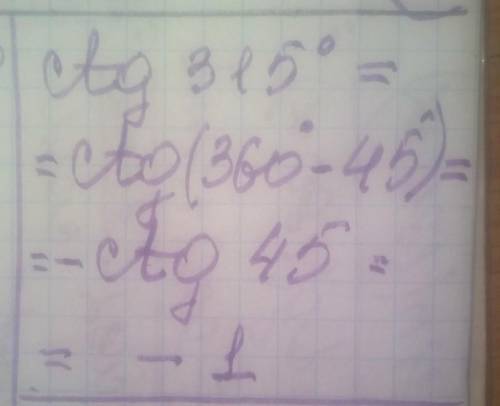 ctg 315° =
= ctg (360° - 45°) =
= - ctg 45 =
= - 1